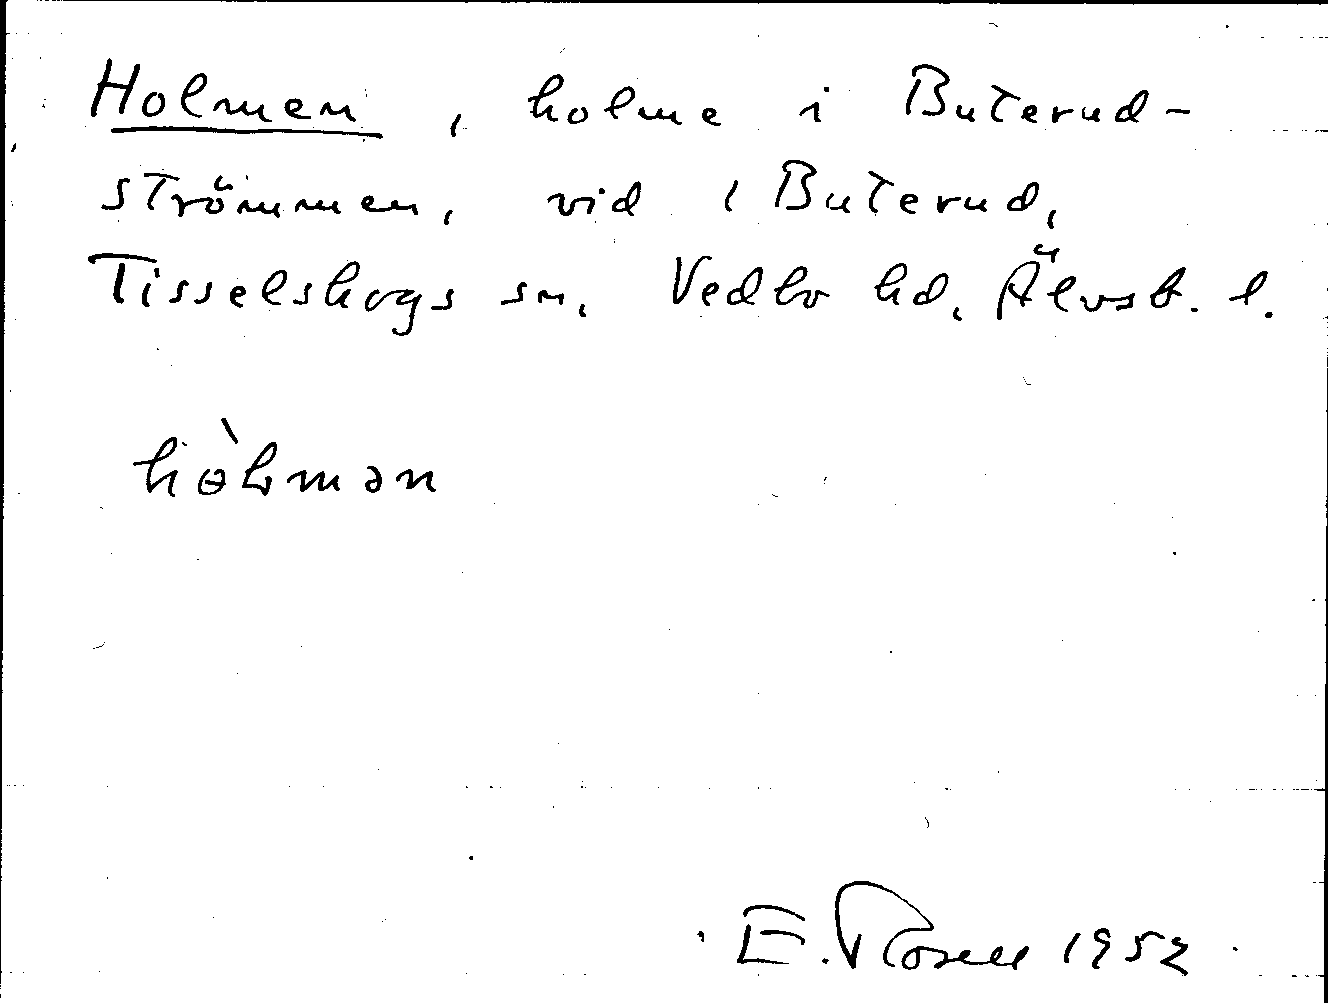 Holmen, holme i Buterud-
strömmen, vid Buterud,
Tisselskogs sn. Vedbo hd. Älvsb. l.
hɵ̀ɫmən
E. Rosell 1952